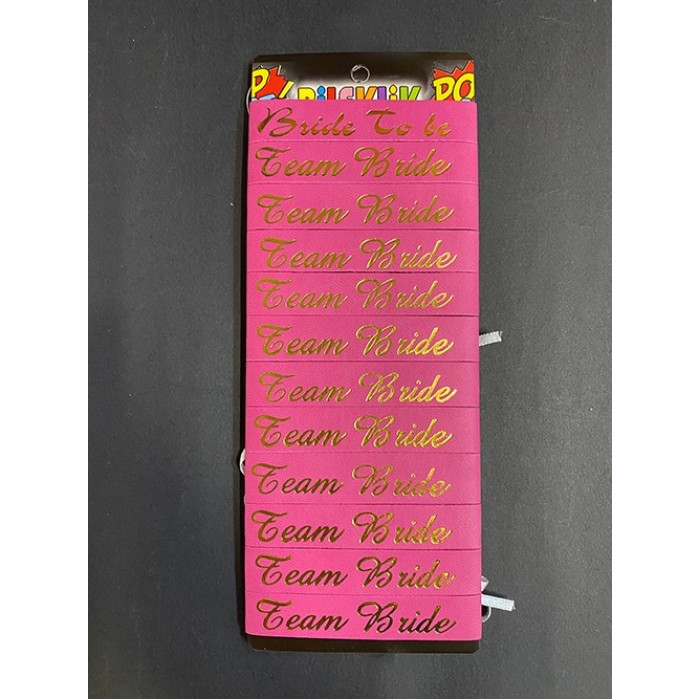 PO
BilEKLiK
PO
Bride To be
Team Bride
Team Bride
Team Bride
Team Bride
Team Bride
Team Bride
Team Bride
Team Bride
Team Bride
Team Bride
Team Bride